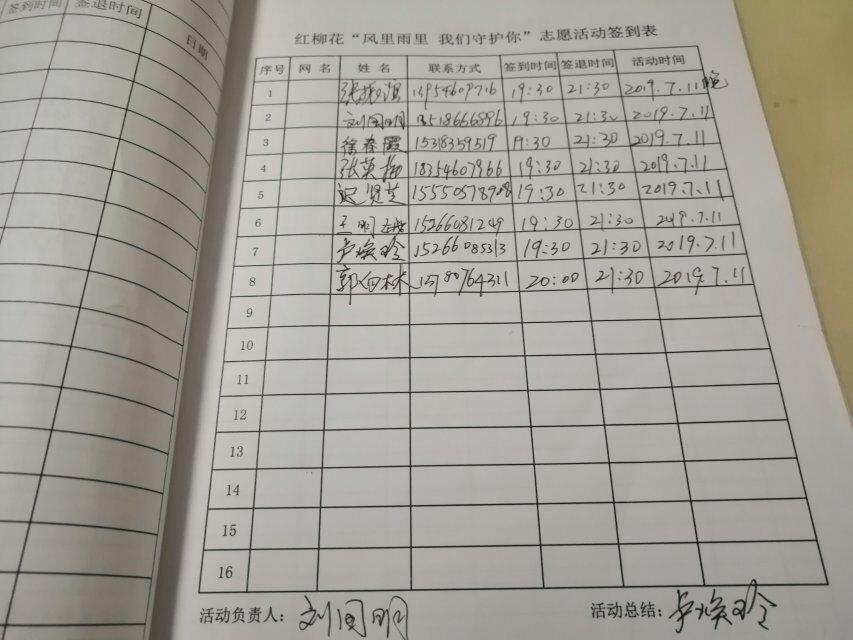 签到时间 签退时间 日期
红柳花“风里雨里 我们守护你”志愿活动签到表
序号 网 名 姓 名 联系方式 签到时间 签退时间 活动时间
1 张振滨 13954609716 19:30 21:30 2019.7.11晚
2 刘国明 13518666896 19:30 21:30 2019.7.11
3 徐春霞 15318359519 19:30 21:30 2019.7.11
4 张英梅 18354607966 19:30 21:30 2019.7.11
5 迟贤芝 15550578908 19:30 21:30 2019.7.11
6 王明 15266081249 19:30 21:30 2019.7.11
7 卢焕玲 15266085313 19:30 21:30 2019.7.11
8 郭向林 20:00 21:30 2019.7.11
9
10
11
12
13
14
15
16
活动负责人: 刘国明 活动总结: 卢焕玲